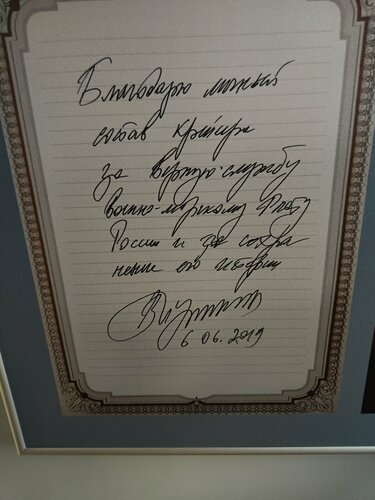 Благодарю личный
состав крейсера
за верную службу
военно-морскому флоту
России и за сохра
нение его истории
6 06. 2019